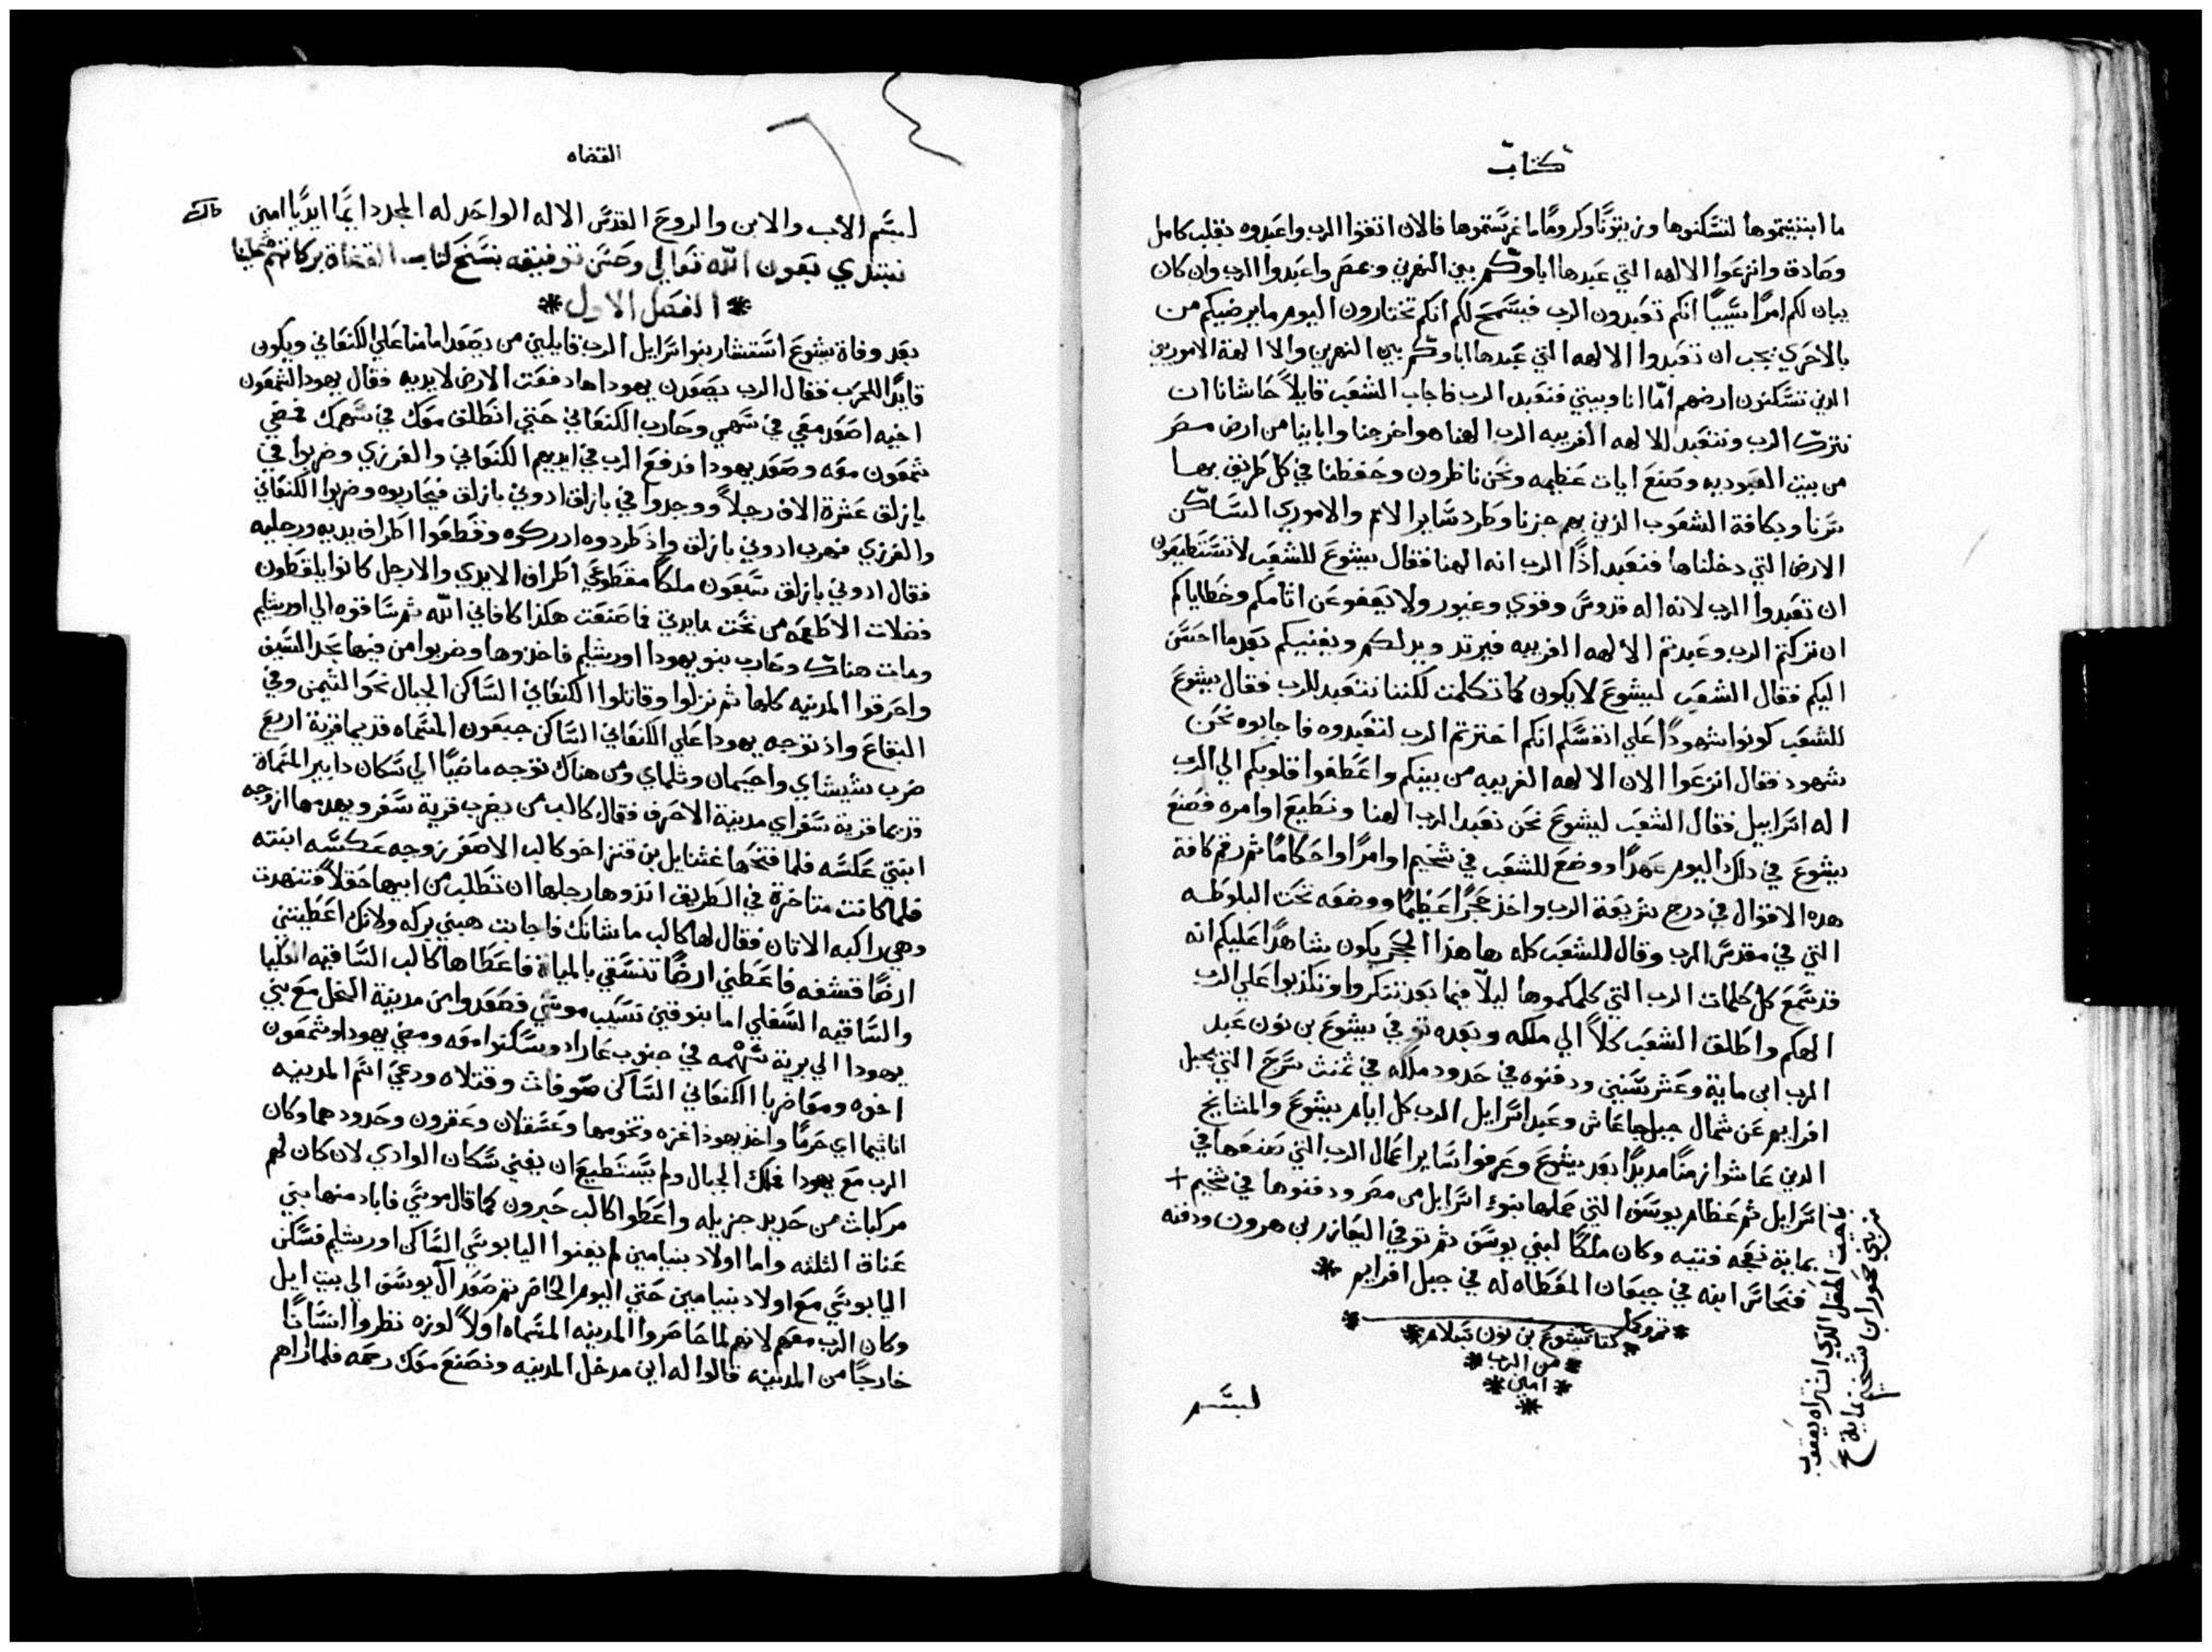 كتاب
ما ابتنيتموها لتسكنوها وزيتونًا وكرومًا ما غرستموها فالان اتقوا الرب واعبدوه بقلب كامل
وصادق وانزعوا الالهه التي عبدها اباوكم بين النهرين وبمصر واعبدوا الرب وان كان
يبان لكم امرًا سيييًا انكم تعبدون الرب فيسمح لكم انكم تختارون اليوم ما يرضيكم من
بالاحري يجب ان تعبدوا الالهه التي عبدها اباوكم بين النهرين والا الهة الاموريين
الذين تسكنون ارضهم امّا انا وبيتي فنعبد الرب فاجاب الشعب قايلاً حاشانا ان
نترك الرب ونتعبد للالهه الغريبه الرب الهنا هو اخرجنا واباينا من ارض مصر
من بيت العبوديه وصنع ايات عظيمه ونحن ناظرون وحفظنا في كل طريق بها
سرنا وبكافة الشعوب الذين بهم جزنا وطرد ساير الامم والاموري الساكن
الارض التي دخلناها فنعبد اذًا الرب انه الهنا فقال يشوع للشعب لا تستطيعون
ان تعبدوا الرب لانه اله قدوس وقوي وغيور ولا يعفو عن اثامكم وخطاياكم
ان تركتم الرب وعبدتم الالهه الغريبه فيرتد ويدلكم ويفنيكم بعد ما احسن
اليكم فقال الشعب ليشوع لا يكون كما تكلمت لكننا نتعبد للرب فقال يشوع
للشعب كونوا شهودًا علي انفسكم انكم اخترتم الرب لتعبدوه فاجابوه نحن
شهود فقال انزعوا الان الالهه الغريبه من بينكم واعطفوا قلوبكم الي الرب
اله اسراييل فقال الشعب ليشوع نحن نعبد الرب الهنا ونطيع اوامره فصنع
يشوع في دلك اليوم عهدًا ووضع للشعب في شخيم اوامرًا واحكامًا ثم رقم كافة
هده الاقوال في درج شريعة الرب واخذ حجرًا عظيمًا ووضعه تحت البلوطه
التي في مقدس الرب وقال للشعب كله ها هذا الحجر يكون شاهدًا عليكم انه
قد سمع كل كلمات الرب التي كلمكموها ليلّا فيما بعد تنكروا وتكذبوا علي الرب
الهكم واطلق الشعب كلاً الي ملكه وبعده توفي يشوع بن نون عبد
الرب ابن ماية وعشر سنين ودفنوه في حدود ملكه في ثمنث سرح التي بجبل
افرايم عن شمال جبل جاعاش وعبد اسرايل الرب كل ايام يشوع والمشايخ
الدين عاشوا زمنًا مديدًا بعد يشوع وعرفوا ساير اعمال الرب التي صنعها في
اسرايل ثم عظام يوسف التي حملها بنو اسرايل من مصر ودفنوها في شخيم +
بماية نعجه فتيه وكان ملكًا لبني يوسف ثم توفي اليعازر بن هرون ودفنه
فنحاس ابنه في جبعان المعطاه له في جبل افرايم *
تم وكمل
* كتاب يشوع بن نون بسلام *
* من الرب *
* امين *
بسم
في تحت الحقل الدي اشتراه يعقوب
من بني حمور ابن شخيم بماية
القضاه
بسم الاب والابن والروح القدس الاله الواحد له المجد دايمًا ابديًا امين
نبتدي بعون الله تعالي وحسن توفيقه بنسخ كتاب القضاة بركاتهم علينا
* الفصل الاول *
بعد وفاة يشوع استشار بنو اسرايل الرب قايلين من يصعد امامنا علي الكنعاني ويكون
قايدًا للحرب فقال الرب يصعدن يهودا ها دفعت الارض لايديه فقال يهودا لشمعون
اخيه اصعد معي في سهمي وحارب الكنعاني حتي انطلق معك في سهمك فمضي
شمعون معه وصعد يهودا فدفع الرب في ايديهم الكنعاني والفرزي وضربوا في
بازلق عشرة الاف رجلاً ووجدوا في بازلق ادوني بازلق فحاربوه وضربوا الكنعاني
والفرزي فهرب ادوني بازلق واذ طردوه ادركوه وقطعوا اطراف يديه ورجليه
فقال ادوني بازلق سبعون ملكًا مقطوعي اطراف الايدي والارجل كانوا يلقطون
فضلات الاطعمه من تحت مايدتي فما صنعت هكذا كافاني الله ثم ساقوه الي اورشليم
ومات هناك وحارب بنو يهودا اورشليم فاخذوها وضربوا من فيها بحد السيف
واحرقوا المدينه كلها ثم نزلوا وقاتلوا الكنعاني الساكن الجبال نحو التيمن وفي
البقاع واذ توجه يهودا علي الكنعاني الساكن جبعون المسماه قديما قرية اربع
ضرب شيشاي واحيمان وتلماي ومن هناك توجه ماضيًا الي سكان دابير المسماة
قديما قرية سفر اي مدينة الاحرف فقال كالب من يضرب قرية سفر ويهدمها ازوجه
ابنتي عكسه فلما فتحها غثنايل بن قنز اخو كالب الاصغر زوجه عكسه ابنته
فلما كانت متاخرة في الطريق انذوها رجلها ان تطلب من ابيها حقلاً فتنهدت
وهي راكبه الاتان فقال لها كالب ما شانك فاجابت هبني بركه ولانك اعطيتني
ارضًا قشفه فاعطني ارضًا تنسقي بالمياة فاعطاها كالب الساقيه العليا
والساقيه السفلي اما بنو قيني نسيب موسي فصعدوا من مدينة النخل مع بني
يهودا الي برية سهمه في جنوب عاراد وسكنوا معه ومضي يهودا وشمعون
اخوه ومعا ضربا الكنعاني الساكن صوفات وقتلاه ودعي اسم المدينه
اناثيما اي حرمًا واخذ يهودا غزه وتخومها وعسقلان وعقرون وحدودهما وكان
الرب مع يهودا فملك الجبال ولم يستطيع ان يفني سكان الوادي لان كان لهم
مركبات من حديد جزيله واعطوا كالب حبرون كما قال موسي فاباد منها بني
عناق الثلثه واما اولاد بنيامين لم يفنوا اليابوسي الساكن اورشليم فسكن
اليابوسي مع اولاد بنيامين حتي اليوم الحاضر ثم صعد آل يوسف الي بيت ايل
وكان الرب معهم لانهم لما حاصروا المدينه المسماه اولاً لوزه نظروا انسانًا
خارجًا من المدينه قالوا له ابن مدخل المدينه ونصنع معك رحمه فلما اراهم